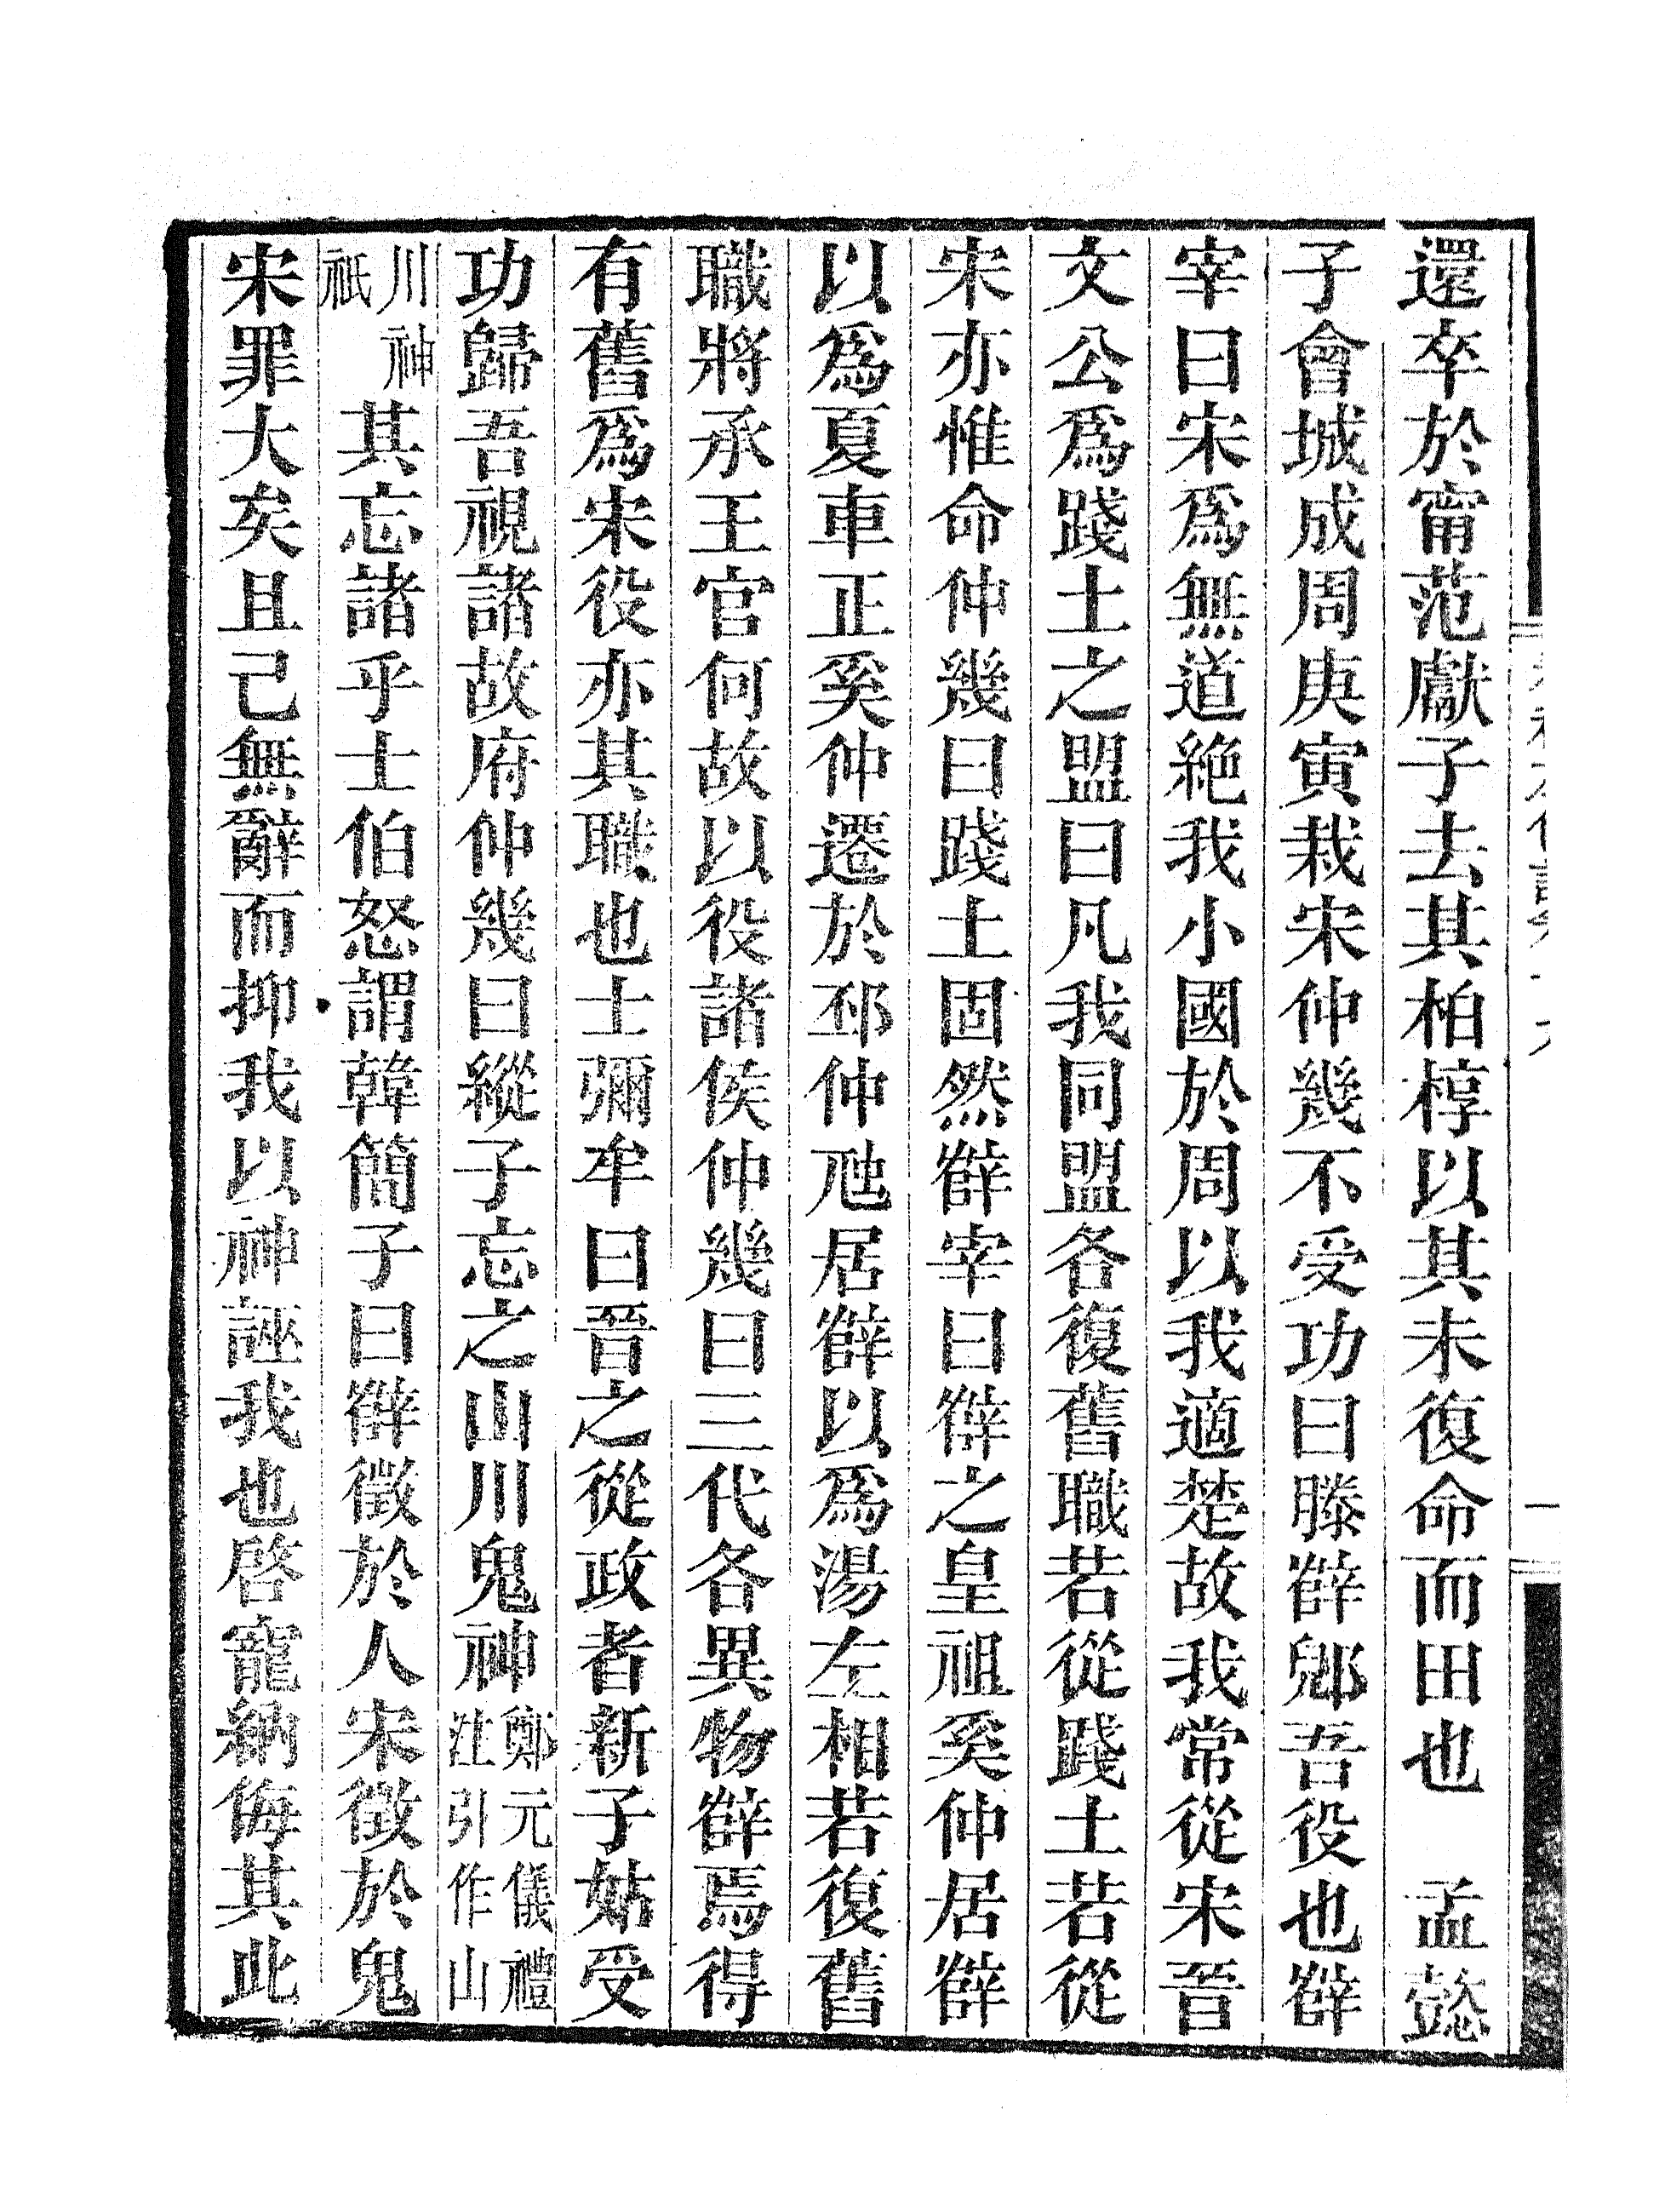 還卒於甯范獻子去其柏椁以其未復命而田也　孟懿
子會城成周庚寅栽宋仲幾不受功曰滕薛郳吾役也薛
宰曰宋爲無道絶我小國於周以我適楚故我常從宋晉
文公爲踐土之盟曰凡我同盟各復舊職若從踐土若從
宋亦惟命仲幾曰踐土固然薛宰曰薛之皇祖奚仲居薛
以爲夏車正奚仲遷於邳仲虺居薛以爲湯左相若復舊
職將承王官何故以役諸侯仲幾曰三代各異物薛焉得
有舊爲宋役亦其職也士彌牟曰晉之從政者新子姑受
功歸吾視諸故府仲幾曰縱子忘之山川鬼神鄭元儀禮注引作山
川神祇其忘諸乎士伯怒謂韓簡子曰薛徵於人宋徵於鬼
宋罪大矣且己無辭而抑我以神誣我也啓寵納侮其此